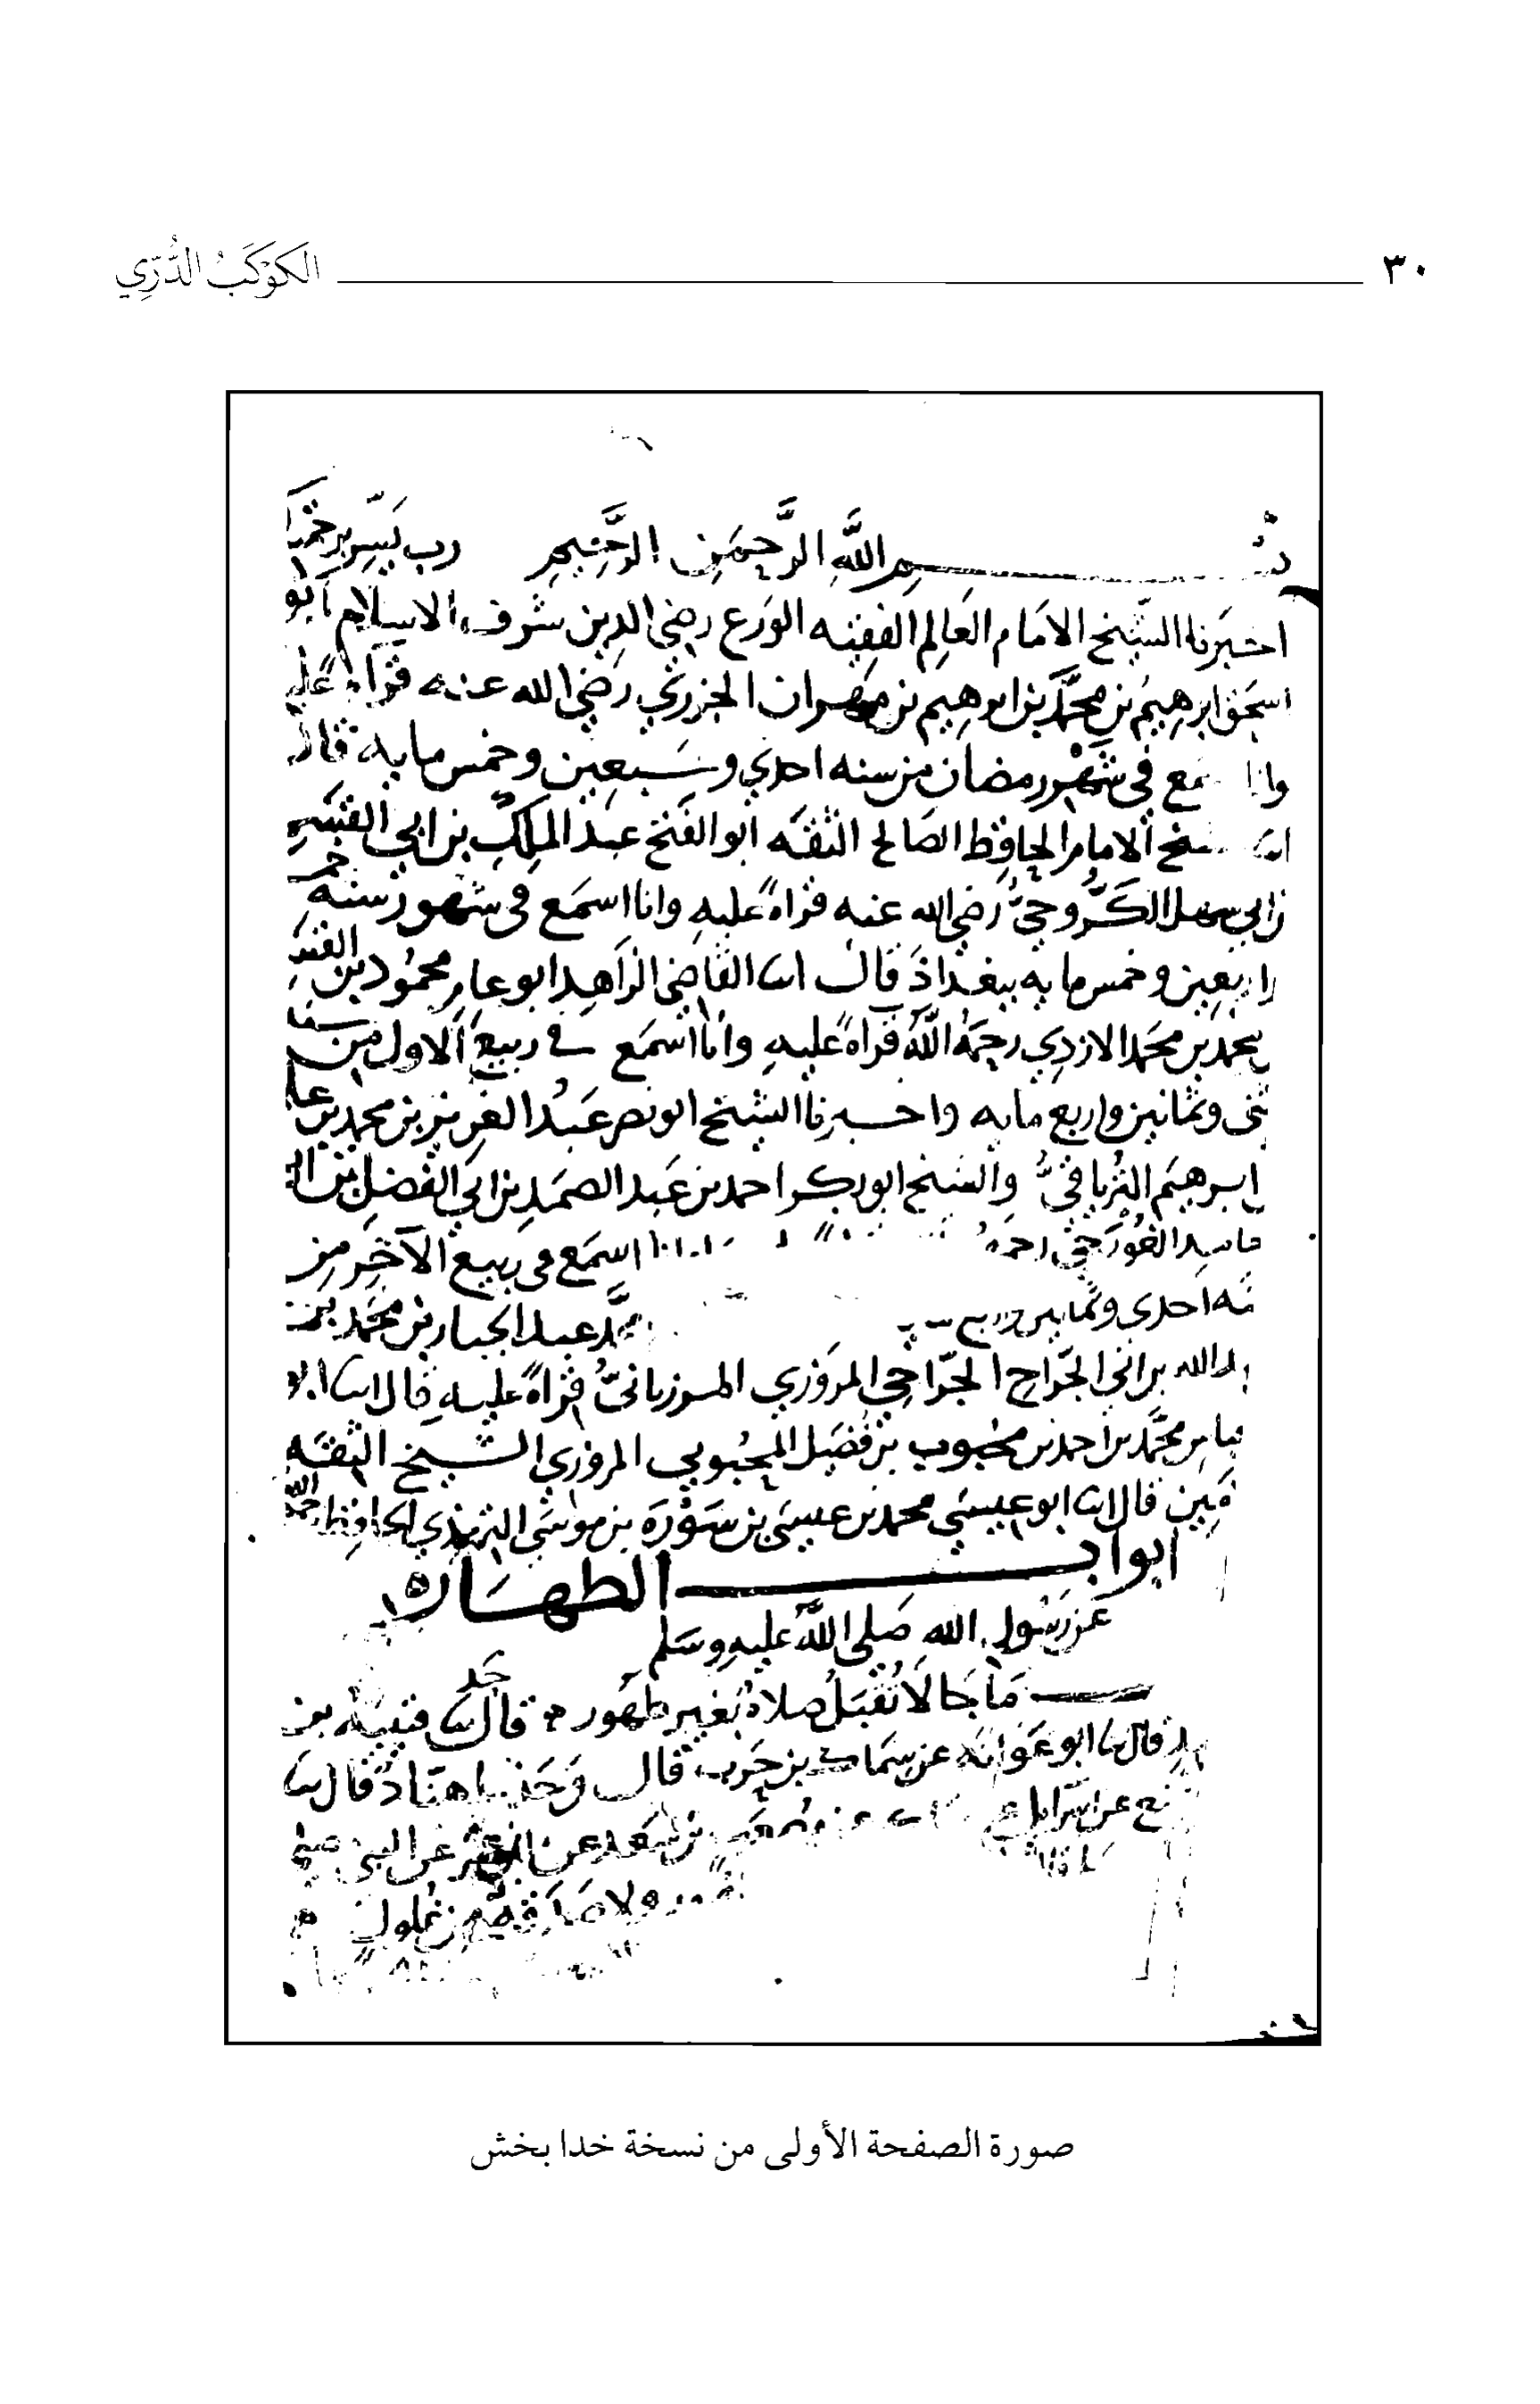 ٣٠
الكَوْكَبُ الدُّرِّي
بسم الله الرَّحمَن الرَّحِيمِ رب يَسِّر برحمتك
اخبَرنا الشيخ الامام العَالِم الفقيه الوَرع رضي الدين شرف الاسلام ابو
اسحق ابرهيم بن محمَّد بن ابرهيم بن مهران الجزري رضي الله عنه قرأة عليه
وانا اسمع في شهْر رمضان من سنه احدي وسَبعين وخمس مايه قال
انا الشيخ الامام الحافظ الصالح الثقَه ابو الفتح عبد الملك بن ابي القسم
بن ابي سهل الكَرُّوجيُّ رضي الله عنه قراةً عليهِ وانا اسمَع في شهور سنه
اربَعين وخمس مايه ببغداذ قال انا القاضي الزاهد ابو عامر محمُود بن القسم
بن محمد الازدي رحمَهُ اللَّه قراةً عليهِ وانا اسمَع في ربيع الاول من سنة
وثمانين واربع مايه واخبرنا الشيخ ابو نصر عَبدُ العزيز بن محمد بن علي
ابرهيم الترياقيُّ والشيخ ابو بكر احمد بن عَبد الصمَد بن ابي الفضل بن ابي
حامد الغُورَجيّ رحمَه اسمَع في ربيع الآخِر من
سنَه احدي وثمانين محمَّد عبد الجبار بن محمَّد بن
عبد الله بن ابي الجَرّاح الجَرّاحِي المَروَزي المرزبانيُّ قراةً عليهِ قال انا ابو
العباس محمَّد بن احمد بن محبُوب بن فضَيل المحبُوبي المروزي الشيخ الثقَه
الامين قال انا ابو عيسَى محمد بن عيسَى بن سَوْرَة بن موسَى الترمذي الحافِظ رحمه الله
ابواب الطهَاره
عن رَسُول الله صَلى اللَّهُ عليهِ وسَلم
مَا جَا لَا تُقبَلُ صلاةٌ بغير طهُور قال حَدثنا قتيبَه بن
قال نا ابو عَوَانَه عن سِمَاك بن حَرب قال وَحَدثنا هنّاد قال نا
وكيع عن اسرايل عن عن مُصعَب بن سَعد عن ابن عمَر عن النبي صلى
ولا صَدَقَة من غُلول
صورة الصفحة الأولى من نسخة خدا بخش